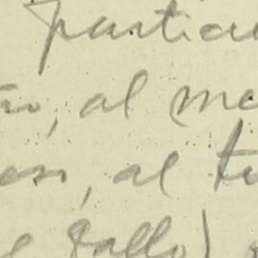 particu
, al me
, al tu
gallo)